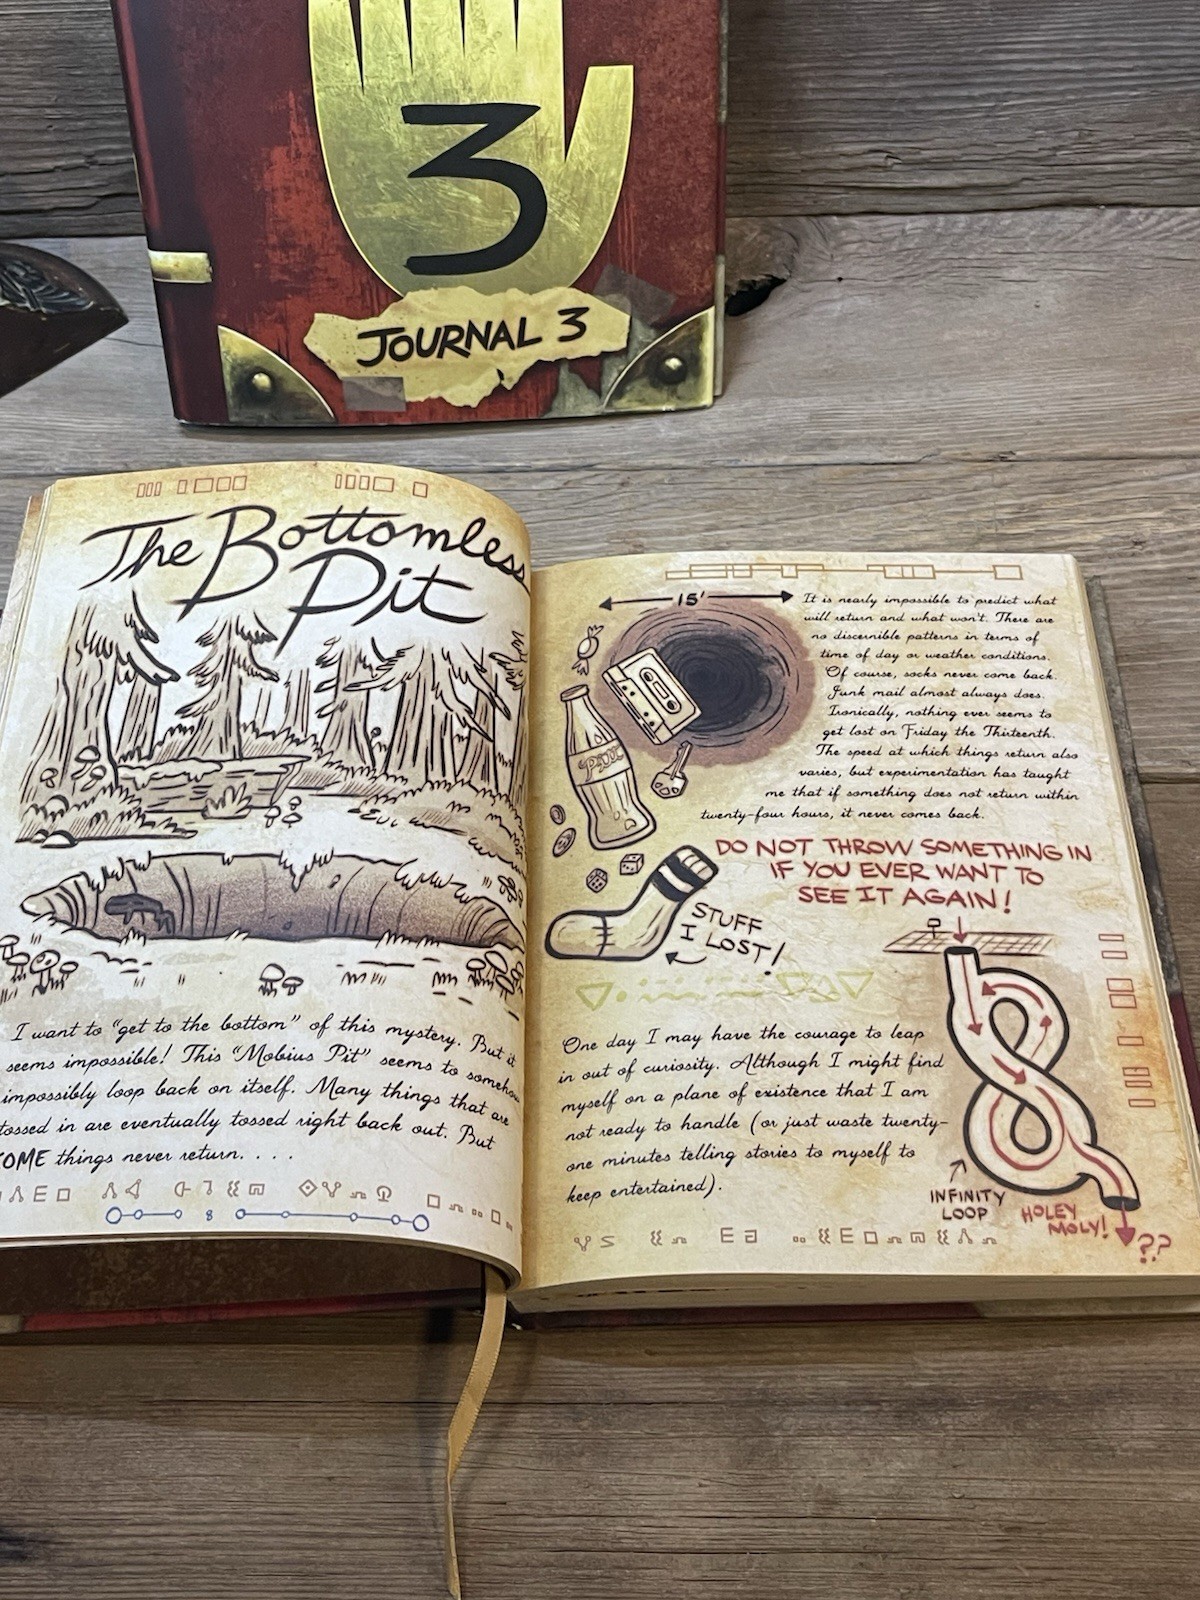 3
JOURNAL 3
The Bottomless
Pit
I want to "get to the bottom" of this mystery. But it
seems impossible! This "Mobius Pit" seems to somehow
impossibly loop back on itself. Many things that are
tossed in are eventually tossed right back out. But
SOME things never return. . . .
8
15'
It is nearly impossible to predict what
will return and what won't. There are
no discernible patterns in terms of
time of day or weather conditions.
Of course, socks never come back.
Junk mail almost always does.
Ironically, nothing ever seems to
get lost on Friday the Thirteenth.
The speed at which things return also
varies, but experimentation has taught
me that if something does not return within
twenty-four hours, it never comes back.
Pitt
DO NOT THROW SOMETHING IN
IF YOU EVER WANT TO
SEE IT AGAIN!
STUFF
I LOST!
One day I may have the courage to leap
in out of curiosity. Although I might find
myself on a plane of existence that I am
not ready to handle (or just waste twenty-
one minutes telling stories to myself to
keep entertained).
INFINITY
LOOP
HOLEY
MOLY!
??